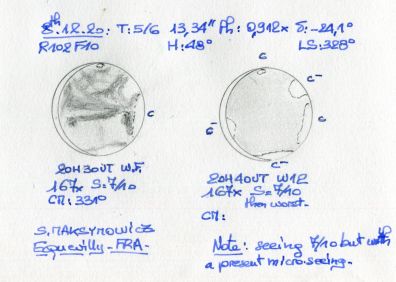 8th.12.20: T:5/6 13,34" Ph: 0,912x δ: -24,1°
R102F10 H:48° LS:328°
C
C-
C
C
C-
C-
20H30UT W.F.
167x S=7/10
CM: 331°
20H40UT W12
167x S=7/10
then worst.
CM:
S. MAKSYMOWICZ
Ecquevilly - FRA -
Note: seeing 7/10 but with
a present micro seeing.